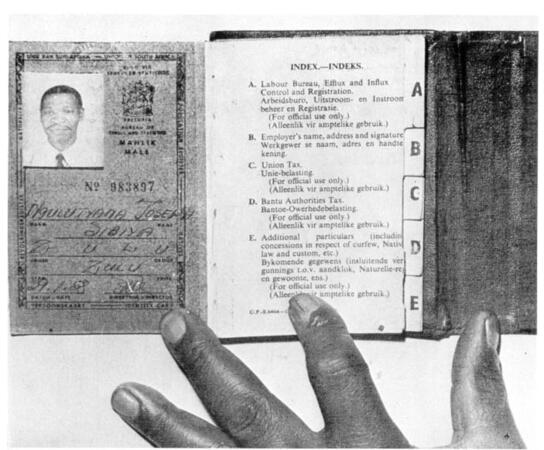 UNIE VAN SUID-AFRIKA
SOUTH AFRICA
BURO VIR
SENSUS EN STATISTIEK
PRETORIA
BUREAU OF
CENSUS AND STATISTICS
MANLIK
MALE
No 983897
JOSEPH
SIBIYA
ZULU
PERSOONSKAART
IDENTITY CARD
INDEX.—INDEKS.
A. Labour Bureau, Efflux and Influx
Control and Registration.
Arbeidsburo, Uitstroom- en Instroom
beheer en Registrasie.
(For official use only.)
(Alleenlik vir amptelike gebruik.)
B. Employer's name, address and signature
Werkgewer se naam, adres en handte
kening.
C. Union Tax.
Unie-belasting.
(For official use only.)
(Alleenlik vir amptelike gebruik.)
D. Bantu Authorities Tax.
Bantoe-Owerhedebelasting.
(For official use only.)
(Alleenlik vir amptelike gebruik.)
E. Additional particulars (includin
concessions in respect of curfew, Nativ
law and custom, etc.)
Bykomende gegewens (insluitende ver
gunnings i.v.m. aandklok, Naturelle-re
en gewoonte, ens.)
(For official use only.)
(Alleenlik vir amptelike gebruik.)
A
B
C
D
E